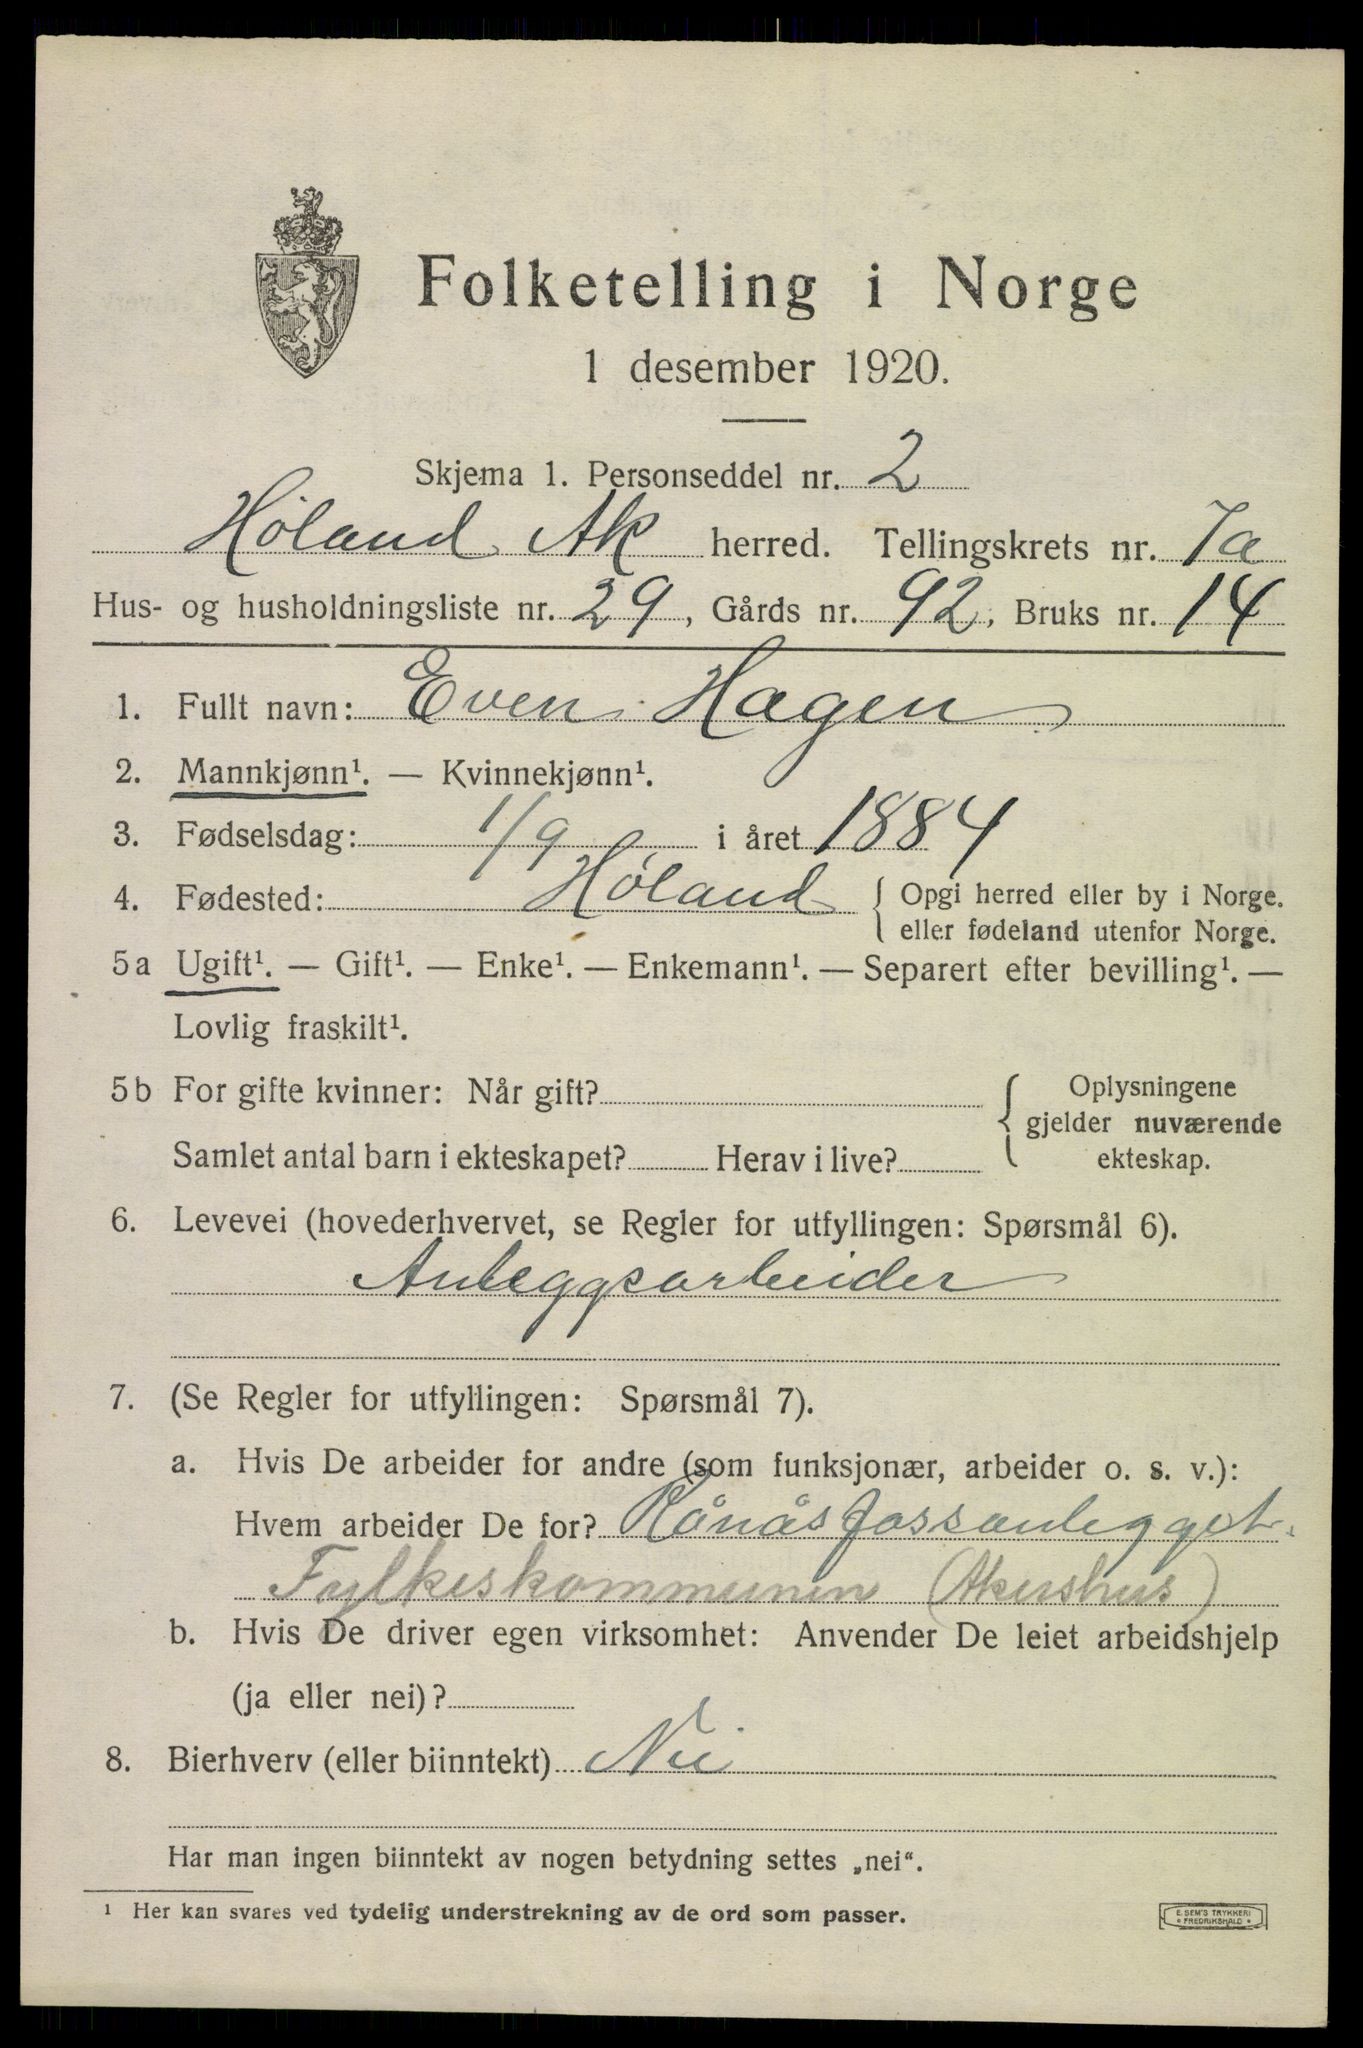 Folketelling i Norge
1 desember 1920.
Skjema 1. Personseddel nr. 2
Høland Ak herred. Tellingskrets nr. 7a
Hus- og husholdningsliste nr. 29, Gårds nr. 92, Bruks nr. 14
1. Fullt navn: Even Hagen
2. Mannkjønn¹. — Kvinnekjønn¹.
3. Fødselsdag: 1/9 i året 1884
4. Fødested: Høland { Opgi herred eller by i Norge.
eller fødeland utenfor Norge.
5a Ugift¹. — Gift¹. — Enke¹. — Enkemann¹. — Separert efter bevilling¹. —
Lovlig fraskilt¹.
5b For gifte kvinner: Når gift?
Samlet antal barn i ekteskapet? Herav i live?
{ Oplysningene
gjelder nuværende
ekteskap.
6. Levevei (hovederhvervet, se Regler for utfyllingen: Spørsmål 6).
Anleggsarbeider
7. (Se Regler for utfyllingen: Spørsmål 7).
a. Hvis De arbeider for andre (som funksjonær, arbeider o. s. v.):
Hvem arbeider De for? Rånåsfossanlegget.
Fylkeskommunen (Akershus)
b. Hvis De driver egen virksomhet: Anvender De leiet arbeidshjelp
(ja eller nei)?
8. Bierhverv (eller biinntekt) Nei
Har man ingen biinntekt av nogen betydning settes „nei“.
¹ Her kan svares ved tydelig understrekning av de ord som passer.
E. SEM'S TRYKKERI
• FREDRIKSHALD •